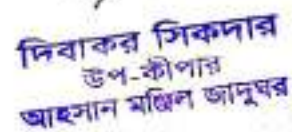 দিবাকর সিকদার
উপ-কীপার
আহসান মঞ্জিল জাদুঘর